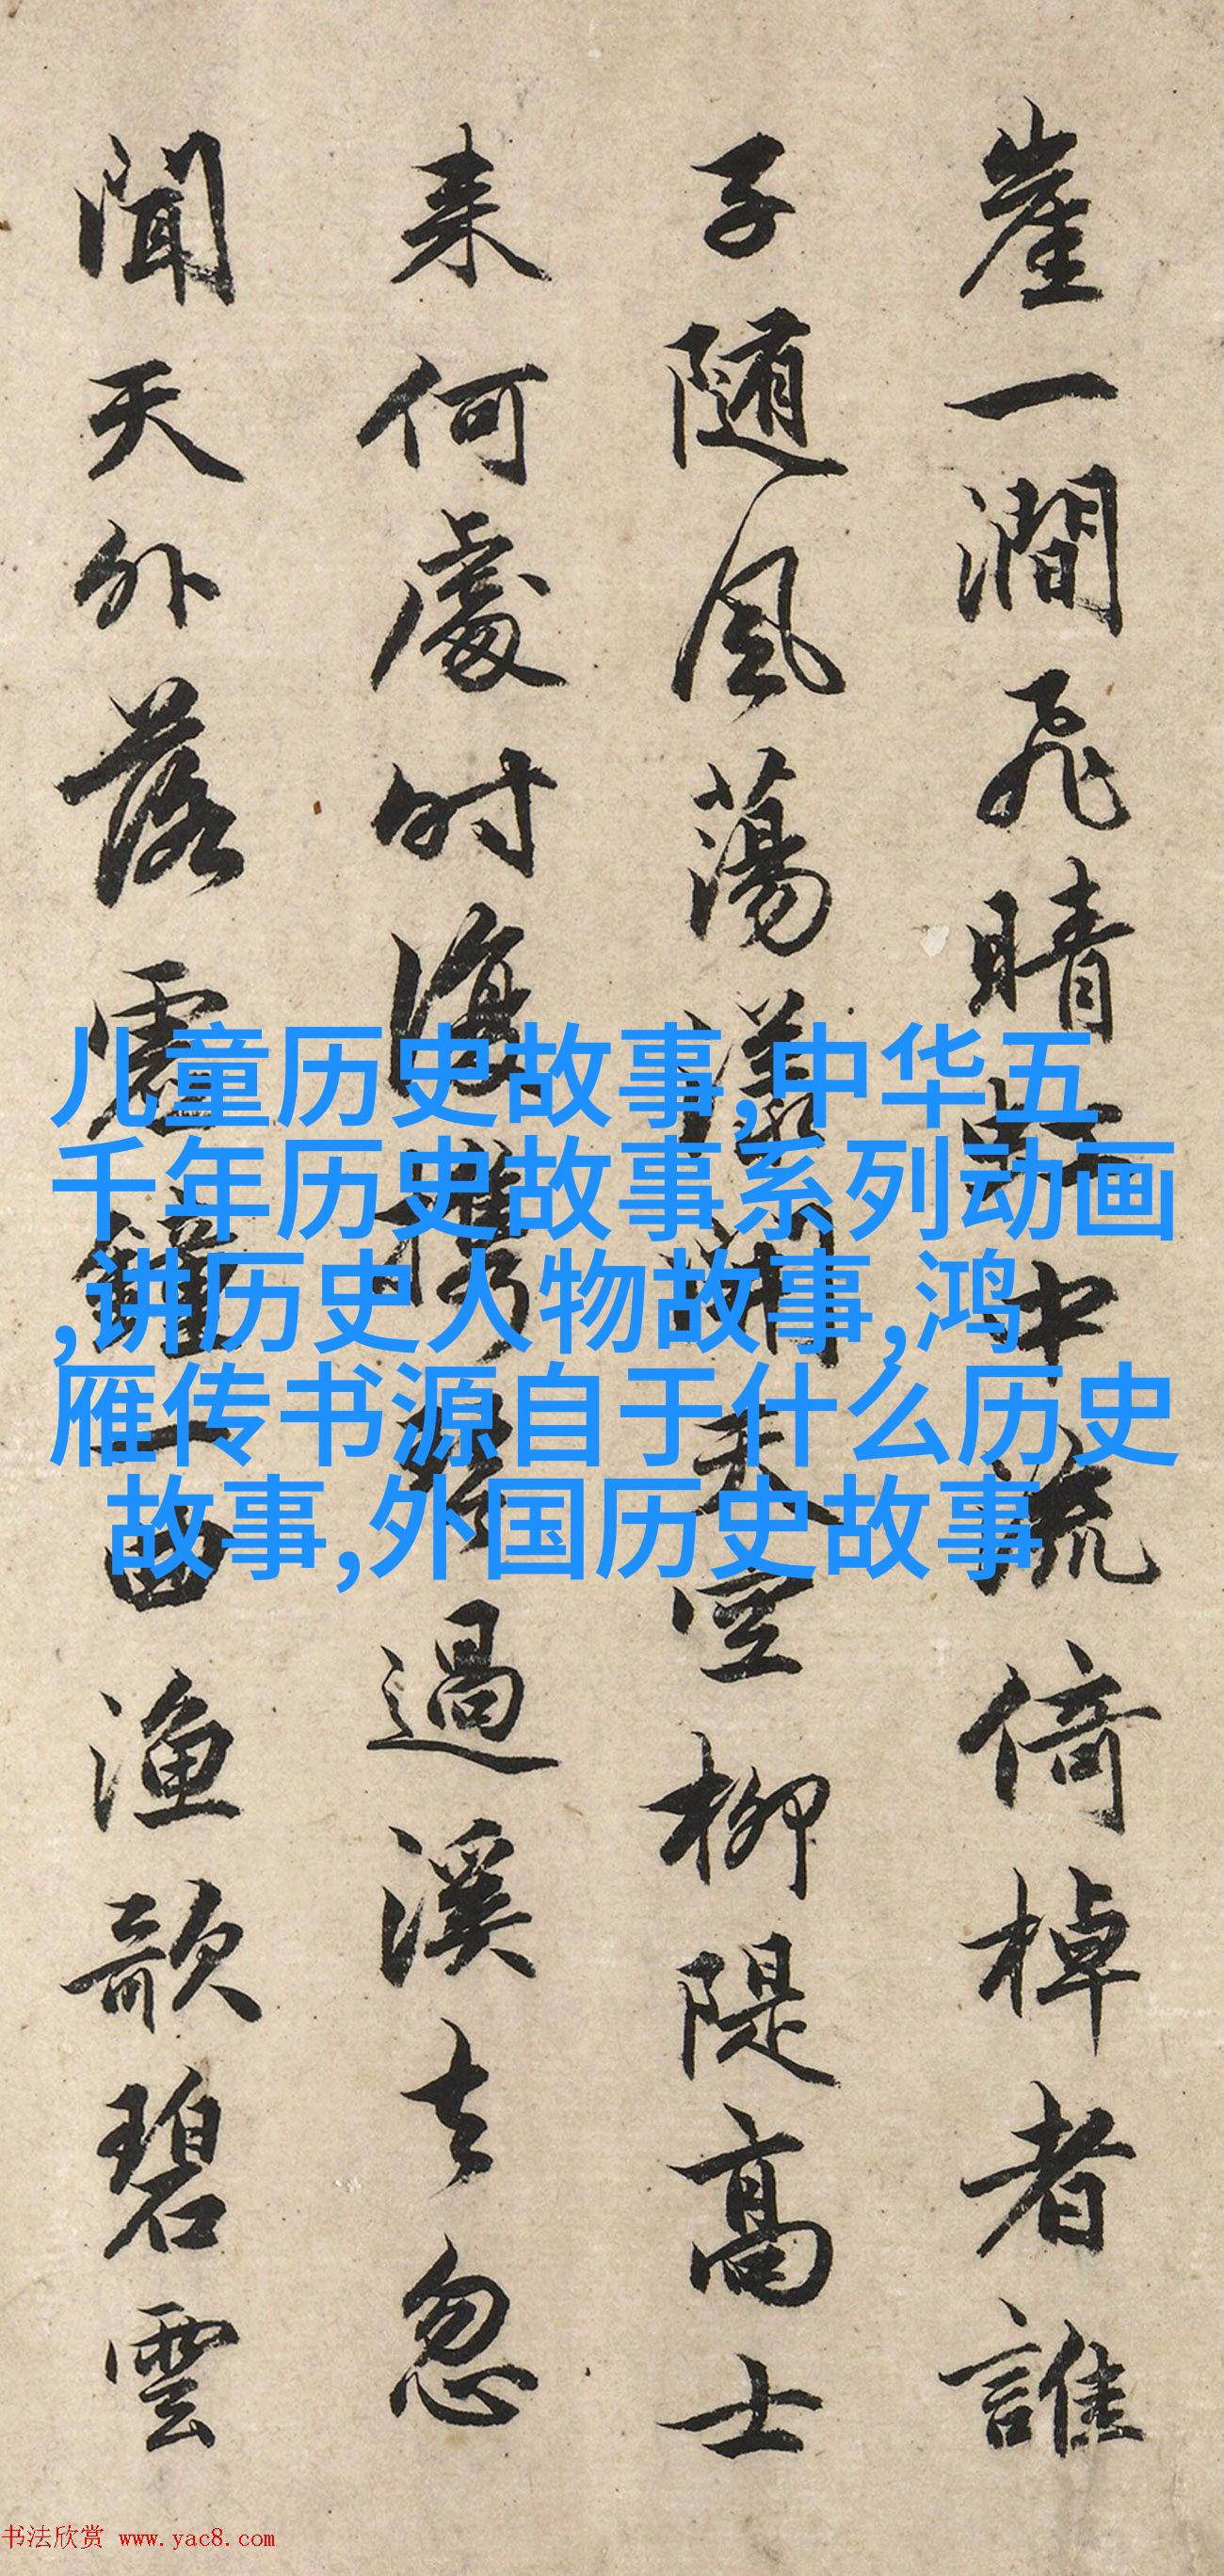 崖一澗飛晴
中流倚棹者誰
子随風蕩漾
天空柳隄高士
来何處时復携琴過溪去忽
聞天外落
一曲漁歌碧雲
儿童历史故事,中华五
千年历史故事系列动画
,讲历史人物故事,鸿
雁传书源自于什么历史
故事,外国历史故事
书法欣赏 www.yac8.com